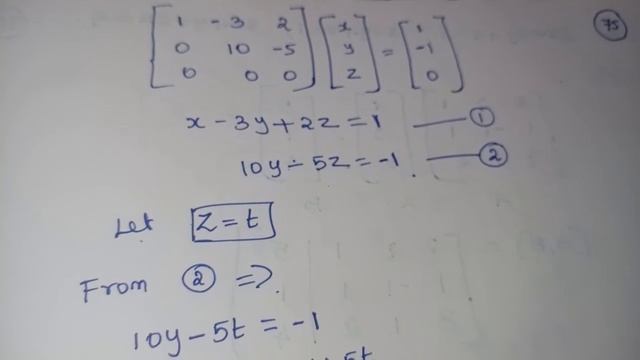 75
[1 -3 2] [x] = [1]
[0 10 -5] [y] [-1]
[0 0 0] [z] [0]
x - 3y + 2z = 1 ——— ①
10y - 5z = -1 ——— ②
Let z = t
From ② ⇒
10y - 5t = -1
5t